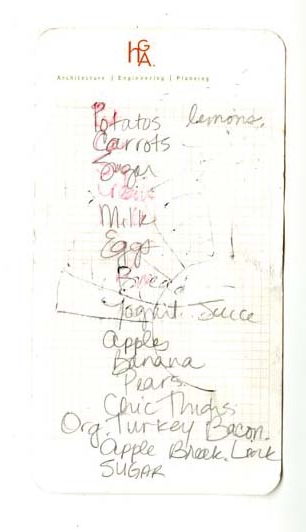 HGA
Architecture | Engineering | Planning
Potatos lemons.
Carrots
Sugar
Milk
Eggs
Bread
Yogurt. Juice
apples
banana
Pears
Chic Thighs
Org. Turkey Bacon.
apple Breek. Link
SUGAR